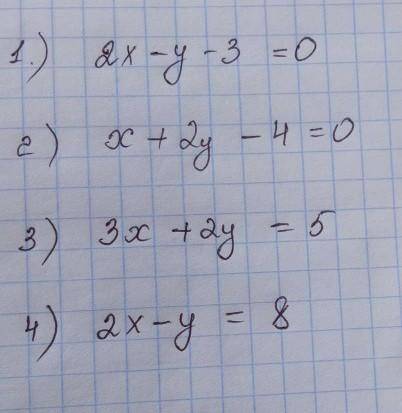 1.) 2x - y - 3 = 0
2) x + 2y - 4 = 0
3) 3x + 2y = 5
4) 2x - y = 8